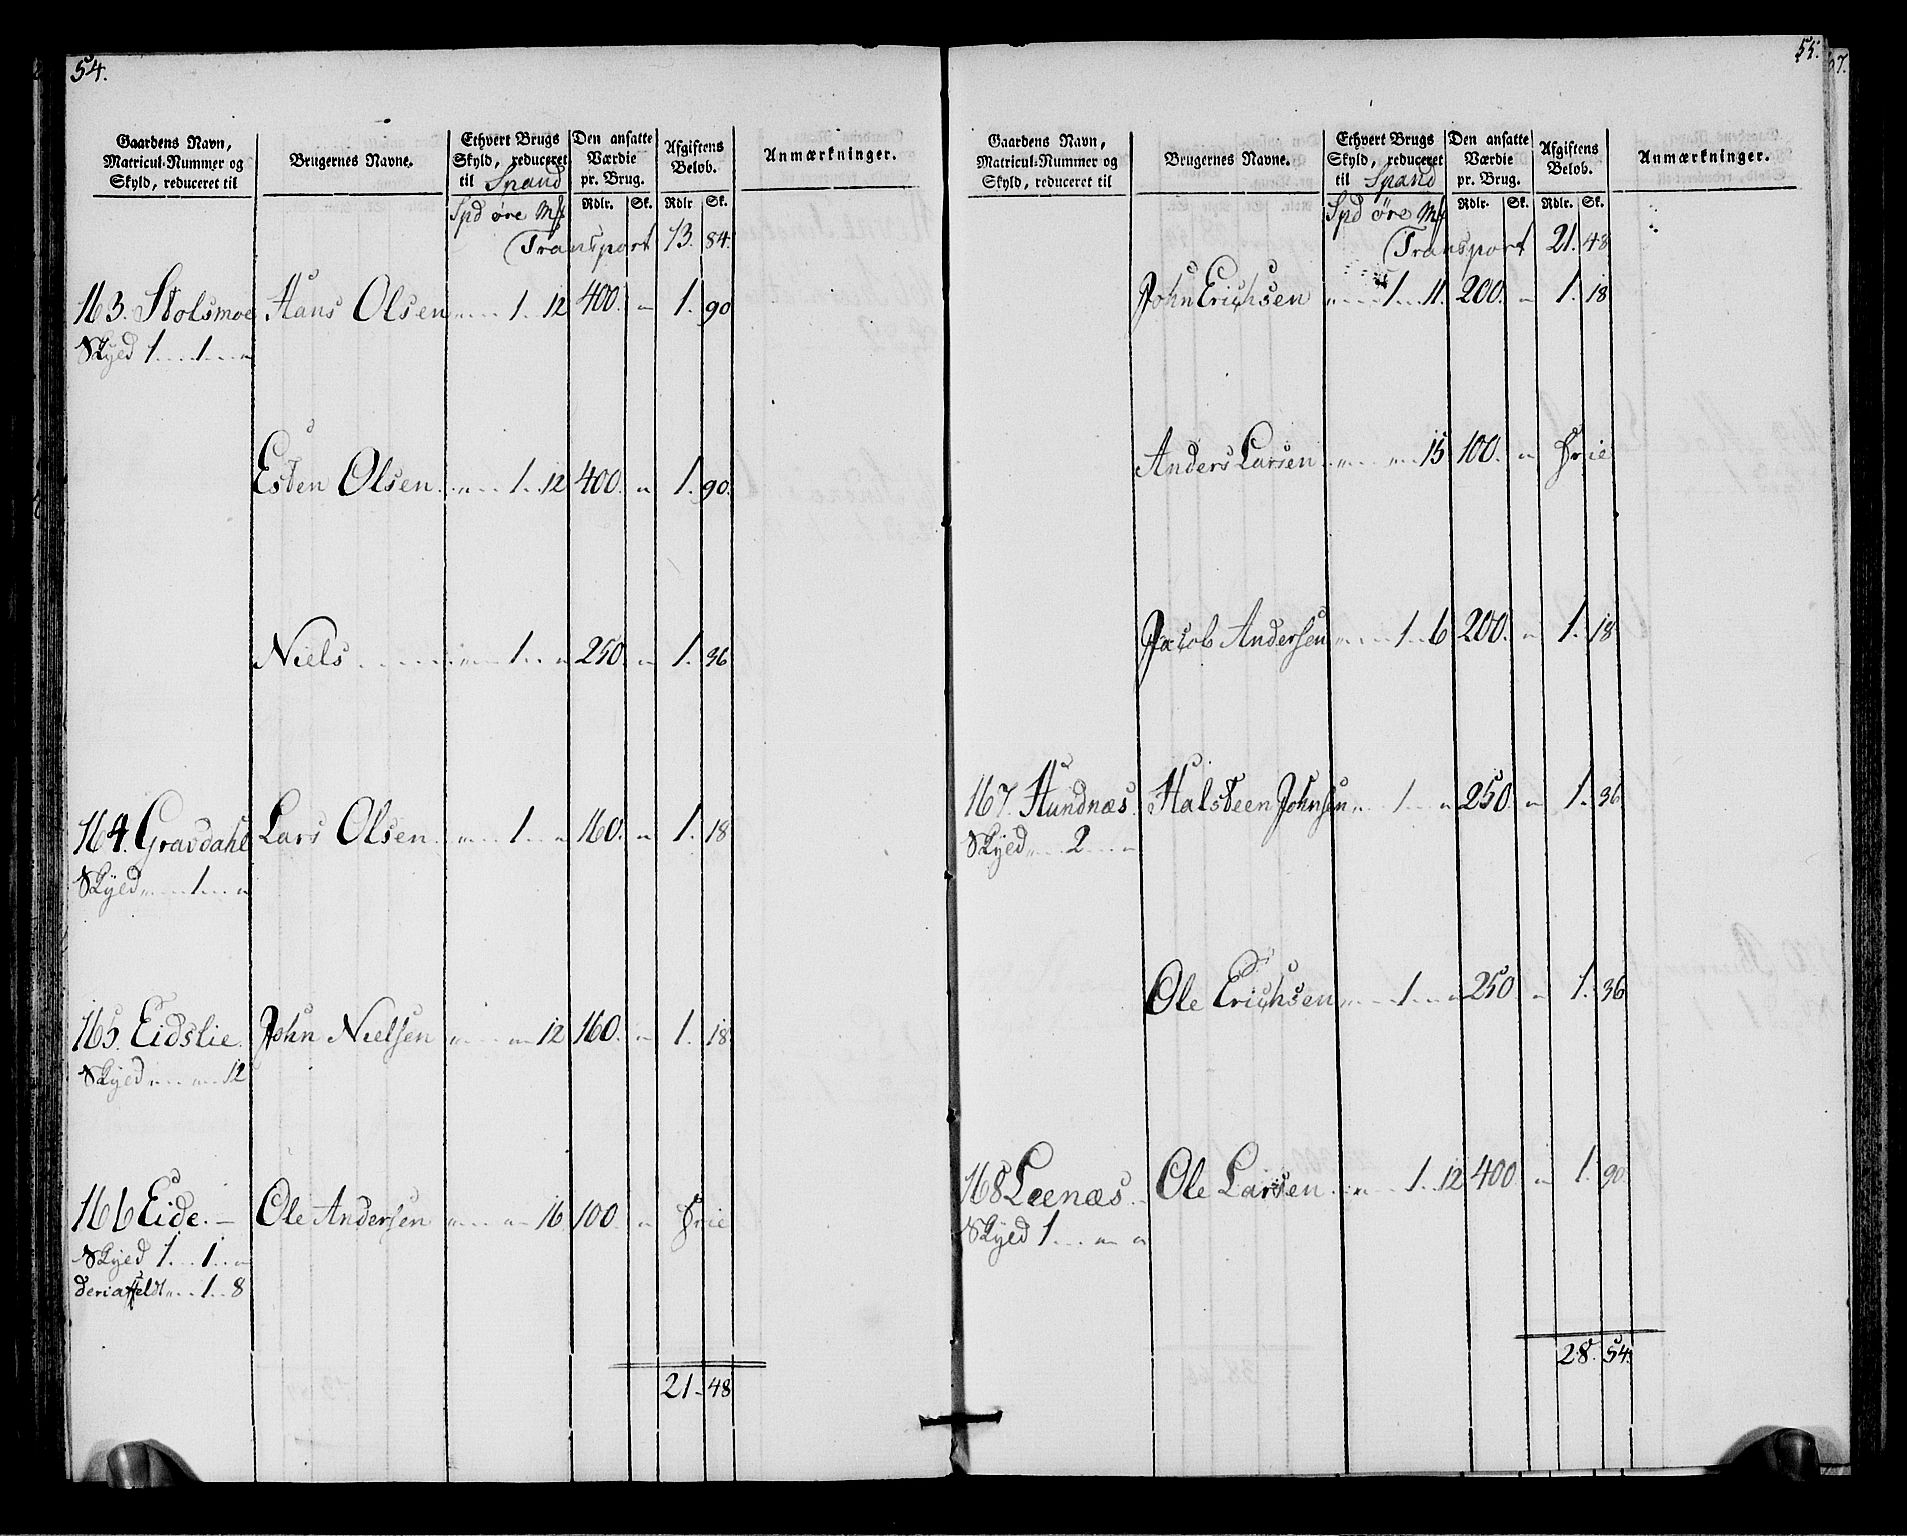 54.
Gaardens Navn,
Matricul-Nummer og
Skyld, reduceret til
Brugernes Navne.
Ethvert Brugs
Skyld, reduceret
til Spand
Den ansatte
Værdie
pr. Brug.
Afgiftens
Beløb.
Anmærkninger.
Spd øre Mk Rdlr. Sk. Rdlr Sk.
Transport 13. 84.
163. Stolsmoe Hans Olsen „ 1. 12 400. „ 1. 90
Skyed 1 . . . 1 . . . „
Esten Olsen. „ 1. 12 400. „ 1. 90.
Niels . . . . „ 1 . . „ 250. „ 1. 36
164. Gravdahl Lars Olsen „ 1 . . „ 160. „ 1. 18
Skyed „ . . . 1 . . . „
165. Eidslie John Nielsen „ „ 12 160. „ 1. 18.
Skyed „ . . . „ . . 12
166 Eide. — Ole Andersen „ „ 16 100. „ frie
Skyed 1 . . . 1 . . „
„ . . 1 . . 8
21. 48
55.
Gaardens Navn,
Matricul-Nummer og
Skyld, reduceret til
Brugernes Navne.
Ethvert Brugs
Skyld, reduceret
til Spand
Den ansatte
Værdie
pr. Brug.
Afgiftens
Beløb.
Anmærkninger.
Spd øre Mk Rdlr. Sk. Rdlr. Sk.
Transport 21. 48
John Erichsen „ 1 . . 11. 200. „ 1. 18
Anders Larsen „ „ 15 100. „ frie
Jacob Andersen „ 1 . . 6 200. „ 1. 18
167. Hundnæs. Halsteen Johnsen „ 1 . . „ 250. „ 1. 36
Skyed „ . . 2 . . . „
Ole Erichsen „ 1 . . „ 250. „ 1. 36
168 Leenæs. Ole Larsen. „ 1. 12 400 „ 1. 90.
Skyed 1 . . . „ „
28. 54.